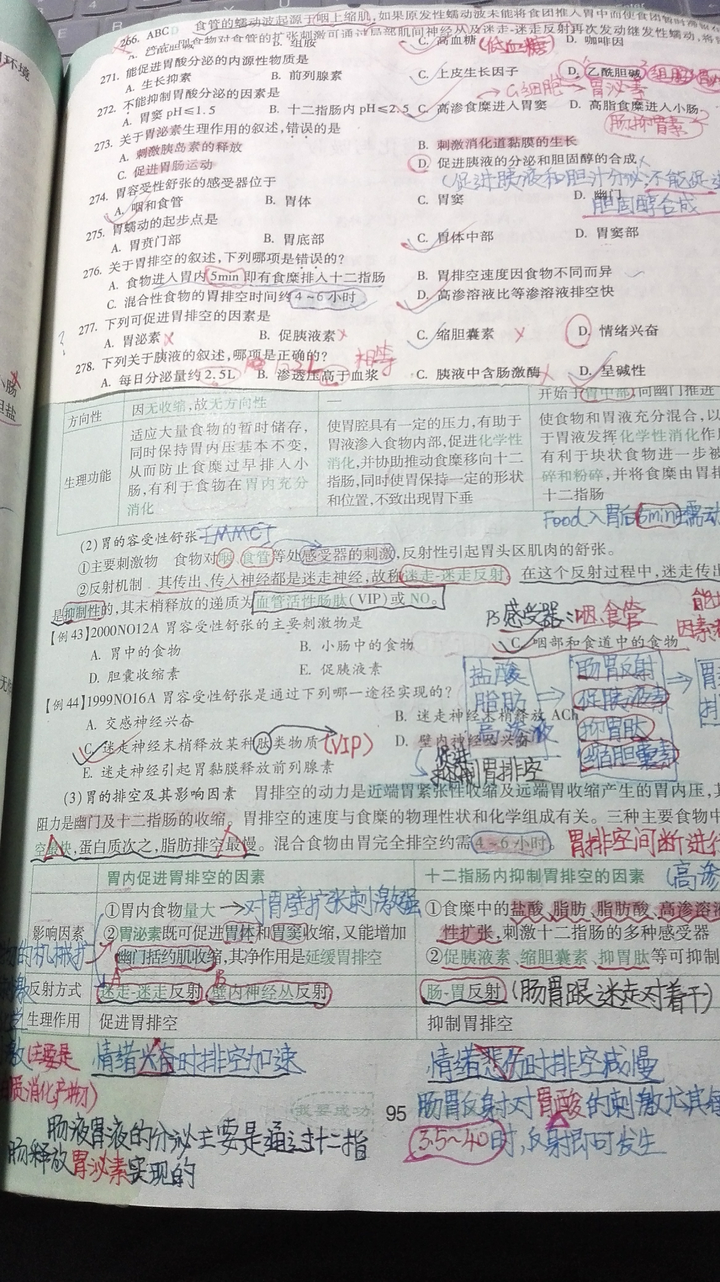 266. ABCD 食管的蠕动波起源于咽上缩肌,如果原发性蠕动波未能将食团推入胃中
食物对食管的扩张刺激可通过局部肌间神经丛及迷走-迷走反射再次发动继发性蠕动
B. 组胺 C. 高血糖(低血糖) D. 咖啡因
271. 能促进胃酸分泌的内源性物质是
A. 生长抑素 B. 前列腺素 C. 上皮生长因子 D. 乙酰胆碱
272. 不能抑制胃酸分泌的因素是 G细胞→胃泌素
A. 胃窦 pH≤1.5 B. 十二指肠内 pH≤2.5 C. 高渗食糜进入胃窦 D. 高脂食糜进入小肠
肠抑胃素
273. 关于胃泌素生理作用的叙述,错误的是
A. 刺激胰岛素的释放 B. 刺激消化道黏膜的生长
C. 促进胃肠运动 D. 促进胰液的分泌和胆固醇的合成
(促进胰液和胆汁分泌,不能促进
胆固醇合成
274. 胃容受性舒张的感受器位于
A. 咽和食管 B. 胃体 C. 胃窦 D. 幽门
275. 胃蠕动的起步点是
A. 胃贲门部 B. 胃底部 C. 胃体中部 D. 胃窦部
276. 关于胃排空的叙述,下列哪项是错误的?
A. 食物进入胃内 5min 即有食糜排入十二指肠 B. 胃排空速度因食物不同而异
C. 混合性食物的胃排空时间约 4~6 小时 D. 高渗溶液比等渗溶液排空快
277. 下列可促进胃排空的因素是
A. 胃泌素 B. 促胰液素 C. 缩胆囊素 D. 情绪兴奋
278. 下列关于胰液的叙述,哪项是正确的? 相等
A. 每日分泌量约 2.5L B. 渗透压高于血浆 C. 胰液中含肠激酶 D. 呈碱性
方向性 因无收缩,故无方向性 — 开始于胃中部,向幽门推进
生理功能 适应大量食物的暂时储存,同时保持胃内压基本不变,从而防止食糜过早排入小肠,有利于食物在胃内充分消化
使胃腔具有一定的压力,有助于胃液渗入食物内部,促进化学性消化,并协助推动食糜移向十二指肠,同时使胃保持一定的形状和位置,不致出现胃下垂
使食物和胃液充分混合,以
于胃液发挥化学性消化作
有利于块状食物进一步被
碎和粉碎,并将食糜由胃排
十二指肠
Food入胃后5min蠕动
(2)胃的容受性舒张
①主要刺激物 食物对咽、食管等处感受器的刺激,反射性引起胃头区肌肉的舒张。
②反射机制 其传出、传入神经都是迷走神经,故称迷走-迷走反射。在这个反射过程中,迷走传出
是抑制性的,其末梢释放的递质为血管活性肠肽(VIP)或 NO。
PS感受器:咽.食管
【例43】2000NO12A 胃容受性舒张的主要刺激物是
A. 胃中的食物 B. 小肠中的食物 C. 咽部和食道中的食物
D. 胆囊收缩素 E. 促胰液素
盐酸 脂肪 高渗液
肠胃反射 促胰液素 抑胃肽 缩胆囊素
【例44】1999NO16A 胃容受性舒张是通过下列哪一途径实现的?
A. 交感神经兴奋 B. 迷走神经末梢释放 ACh
C. 迷走神经末梢释放某种肽类物质(VIP) D. 壁内神经丛兴奋
E. 迷走神经引起胃黏膜释放前列腺素 抑制胃排空
(3)胃的排空及其影响因素 胃排空的动力是近端胃紧张性收缩及远端胃收缩产生的胃内压,其
阻力是幽门及十二指肠的收缩。胃排空的速度与食糜的物理性状和化学组成有关。三种主要食物中
空最快,蛋白质次之,脂肪排空最慢。混合食物由胃完全排空约需 4~6 小时。 胃排空间断进行
胃内促进胃排空的因素 十二指肠内抑制胃排空的因素 (高渗
影响因素 ①胃内食物量大→对胃壁扩张刺激强 ①食糜中的盐酸、脂肪、脂肪酸、高渗溶液
②胃泌素既可促进胃体和胃窦收缩,又能增加 性扩张,刺激十二指肠的多种感受器
幽门括约肌收缩,其净作用是延缓胃排空 ②促胰液素、缩胆囊素、抑胃肽等可抑制
反射方式 迷走-迷走反射、壁内神经丛反射 肠-胃反射(肠胃跟迷走对着干)
生理作用 促进胃排空 抑制胃排空
情绪兴奋时排空加速 情绪悲伤时排空减慢
我要成功 95
肠胃反射对胃酸的刺激尤其
3.5~4.0时,反射即可发生
肠液胃液的分泌主要是通过十二指
肠释放胃泌素实现的